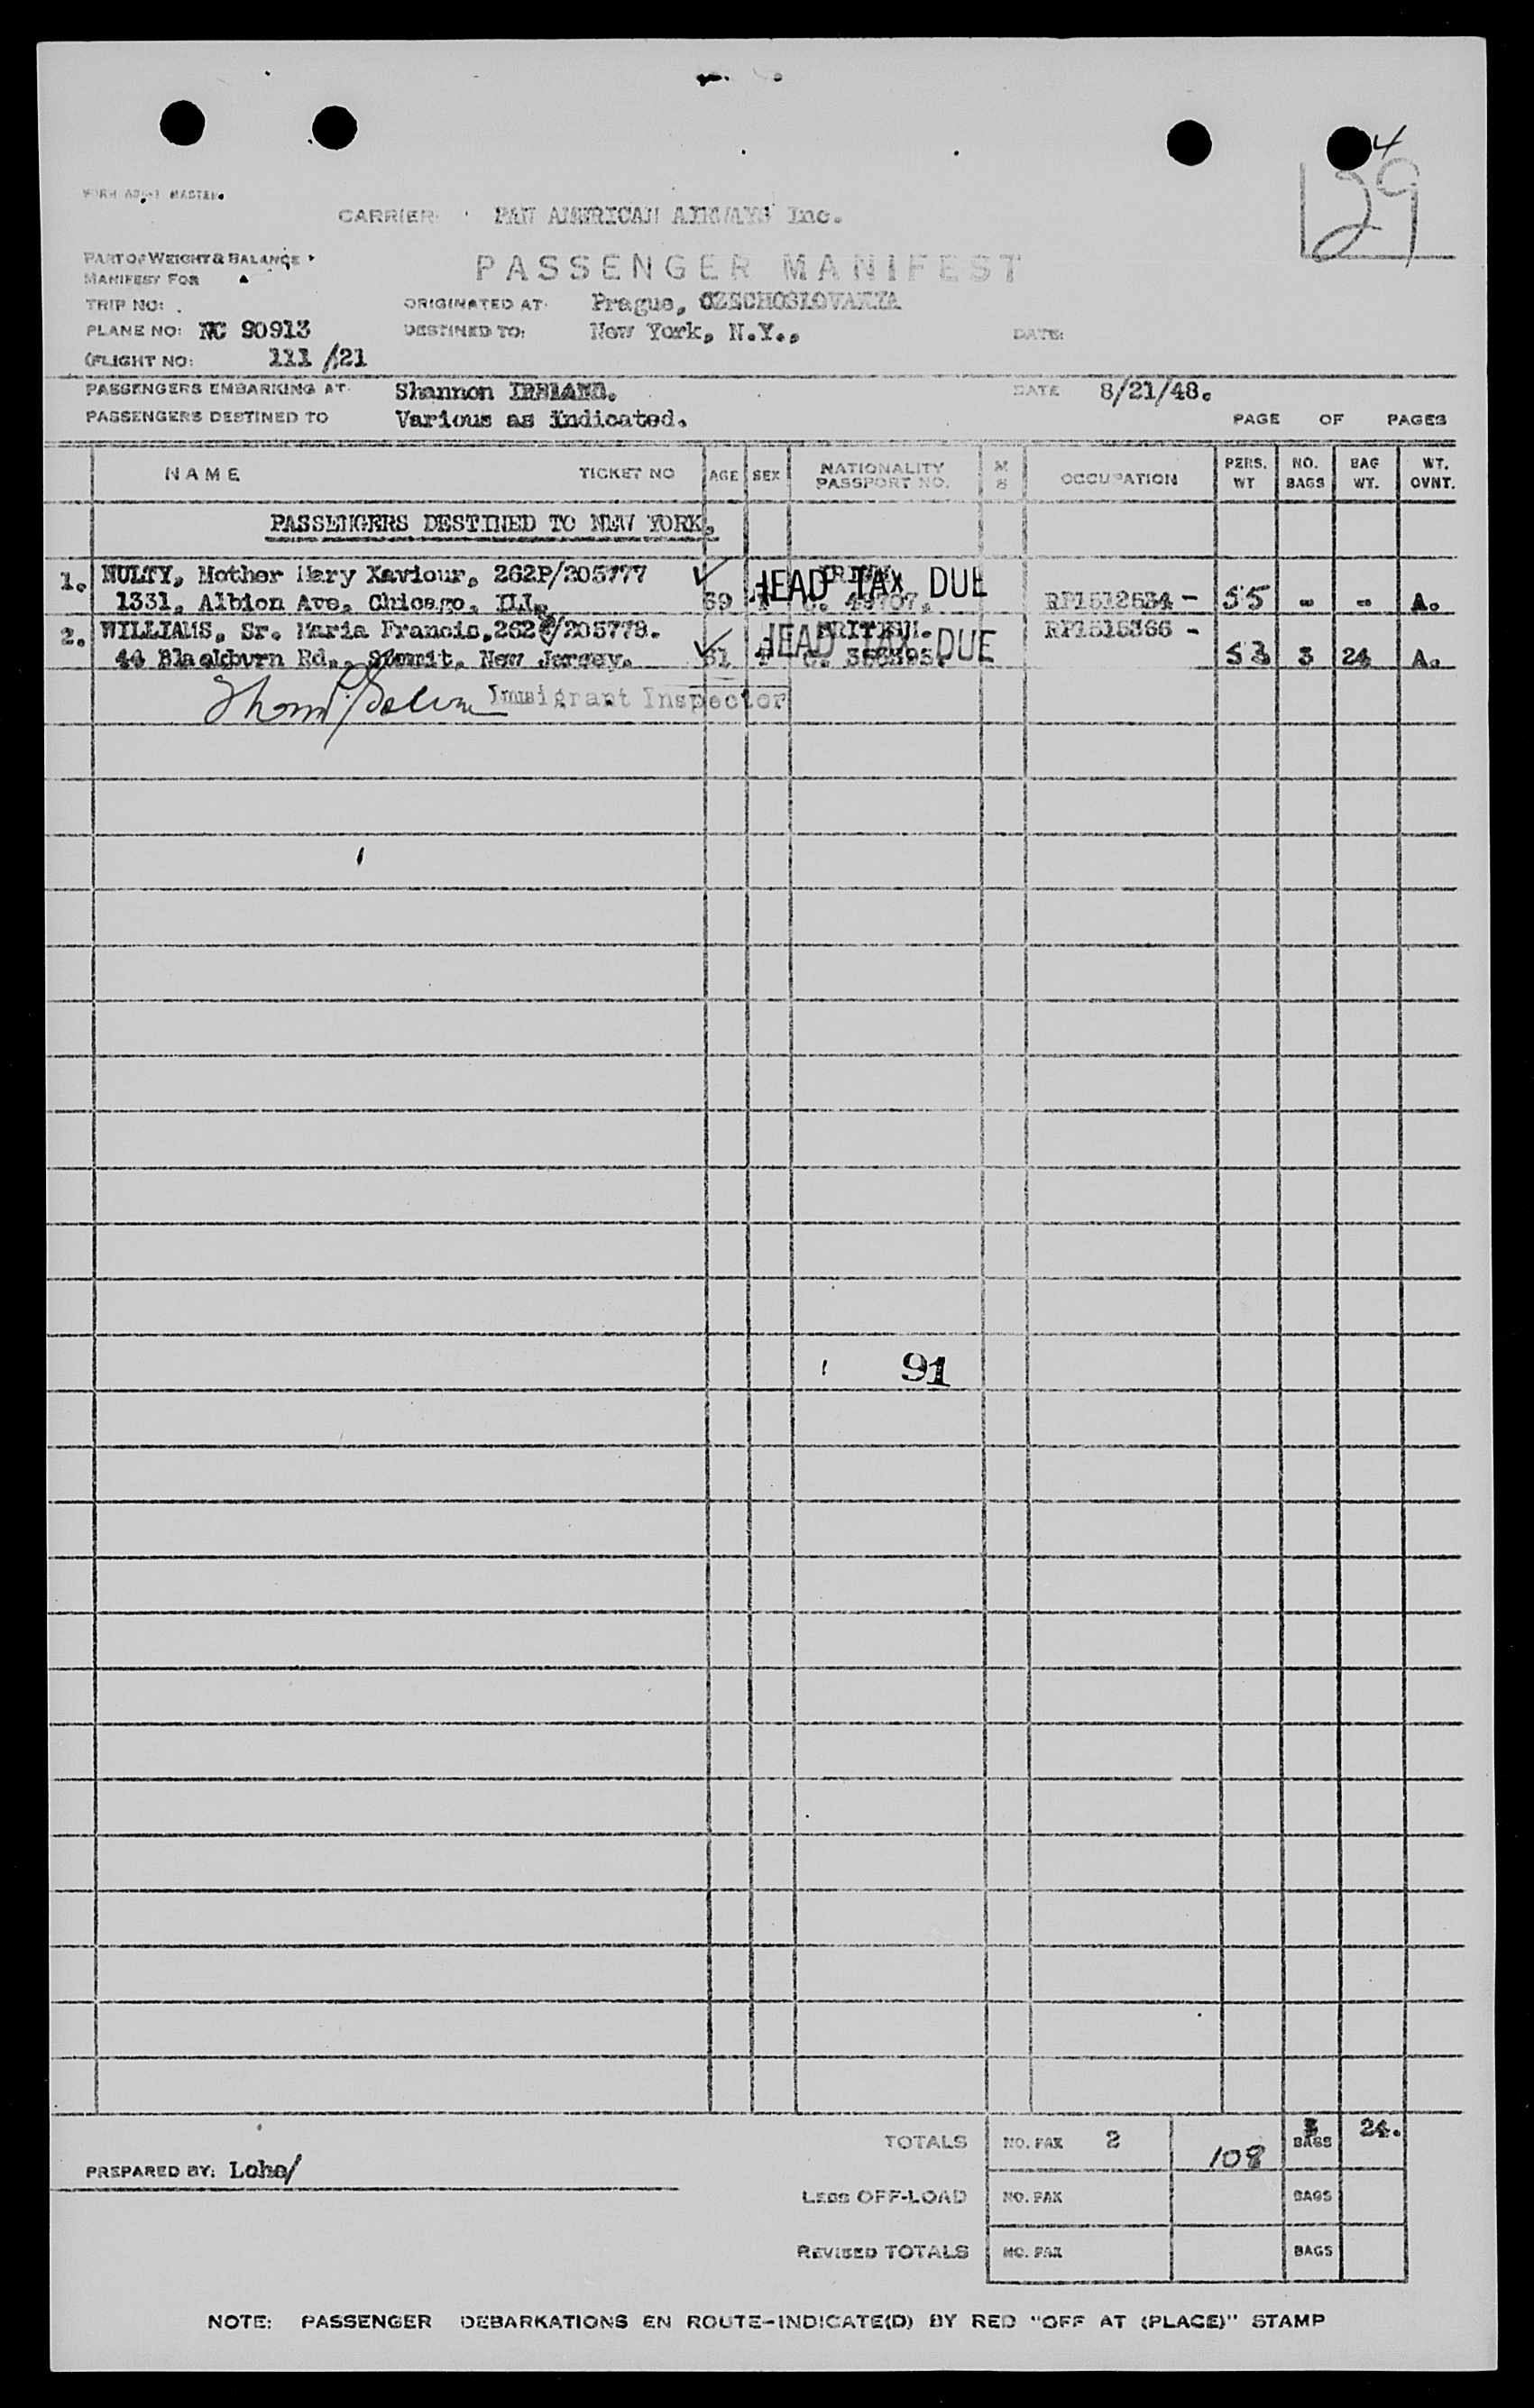 4
29
CARRIER: PAN AMERICAN AIRWAYS Inc.
PART OF WEIGHT & BALANCE
MANIFEST FOR
PASSENGER MANIFEST
TRIP NO:
ORIGINATED AT: Prague, CZECHOSLOVAKIA
PLANE NO: NC 90913
DESTINED TO: New York, N.Y.,
DATE:
FLIGHT NO: 111 /21
PASSENGERS EMBARKING AT: Shannon IRELAND.
DATE 8/21/48.
PASSENGERS DESTINED TO Various as Indicated.
PAGE OF PAGES
NAME TICKET NO AGE SEX NATIONALITY PASSPORT NO. M S OCCUPATION PERS. WT NO. BAGS BAG WT. WT. OVNT.
PASSENGERS DESTINED TO NEW YORK.
1. NULTY, Mother Mary Xaviour, 262P/205777 HEAD TAX DUE
1331, Albion Ave. Chicago, ILL. RP1512534 - 55 - - A.
2. WILLIAMS, Sr. Maria Francis, 262 /205778. BRITISH. HEAD TAX DUE RP1515366 -
44 Blackburn Rd., Summit, New Jersey. 53 3 24 A.
Immigrant Inspector
91
TOTALS NO. PAX 2 108 3 BAGS 24.
PREPARED BY: Lohe/
LESS OFF-LOAD NO. PAX BAGS
REVISED TOTALS NO. PAX BAGS
NOTE: PASSENGER DEBARKATIONS EN ROUTE-INDICATE(D) BY RED "OFF AT (PLACE)" STAMP